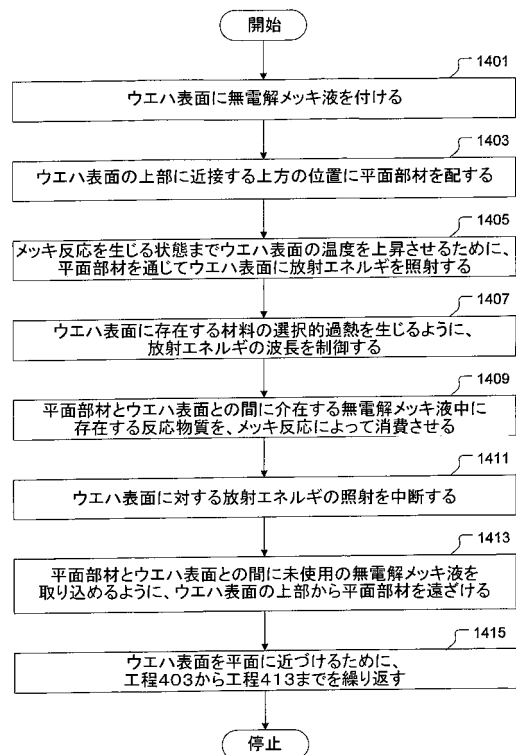 開始
1401
ウエハ表面に無電解メッキ液を付ける
1403
ウエハ表面の上部に近接する上方の位置に平面部材を配する
1405
メッキ反応を生じる状態までウエハ表面の温度を上昇させるために、
平面部材を通じてウエハ表面に放射エネルギを照射する
1407
ウエハ表面に存在する材料の選択的過熱を生じるように、
放射エネルギの波長を制御する
1409
平面部材とウエハ表面との間に介在する無電解メッキ液中に
存在する反応物質を、メッキ反応によって消費させる
1411
ウエハ表面に対する放射エネルギの照射を中断する
1413
平面部材とウエハ表面との間に未使用の無電解メッキ液を
取り込めるように、ウエハ表面の上部から平面部材を遠ざける
1415
ウエハ表面を平面に近づけるために、
工程403から工程413までを繰り返す
停止